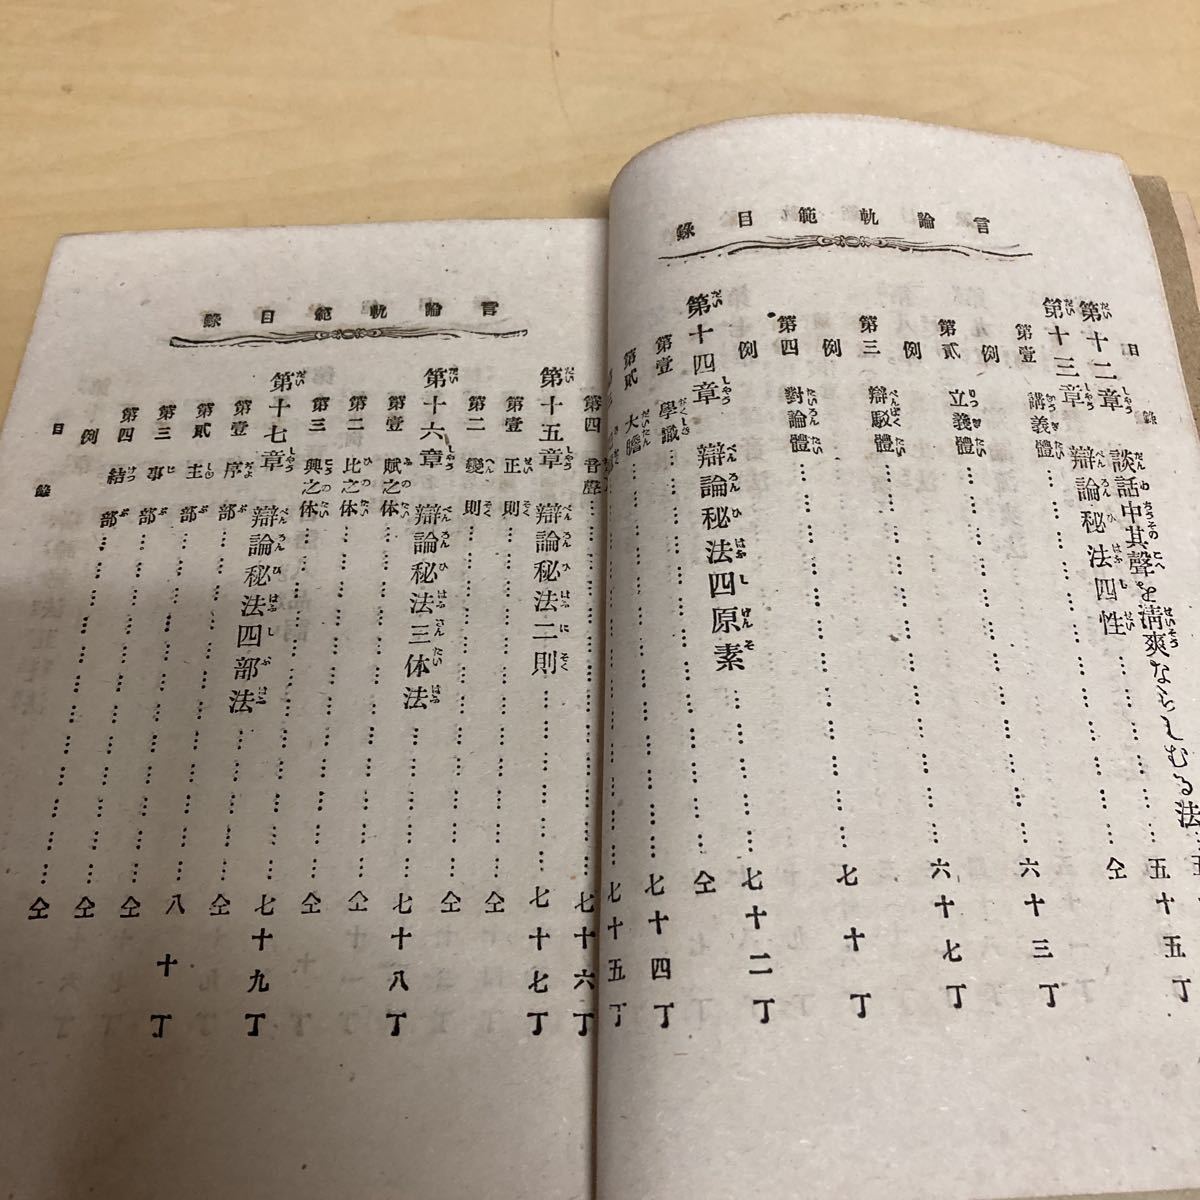 言論軌範目錄
目錄
第十二章 談話中其聲を清爽ならしむる法…五
第十三章 辯論秘法四性………五十五丁
第壹 講義體………仝
例
第貳 立義體………六十三丁
例
第三 辯駁體………六十七丁
例
第四 對論體………七十丁
例
第十四章 辯論秘法四原素………七十二丁
第壹 學識………仝
第貳 大膽………七十四丁
………七十五丁
言論軌範目錄
第四 音聲………七十六丁
第十五章 辯論秘法二則………七十七丁
第壹 正則………仝
第二 變則………仝
第十六章 辯論秘法三体法………七十八丁
第壹 賦之体………仝
第二 比之体………仝
第三 興之体………七十九丁
第十七章 辯論秘法四部法………仝
第壹 序部………八十丁
第貳 主部………仝
第三 事部………仝
第四 結部………仝
例
目錄